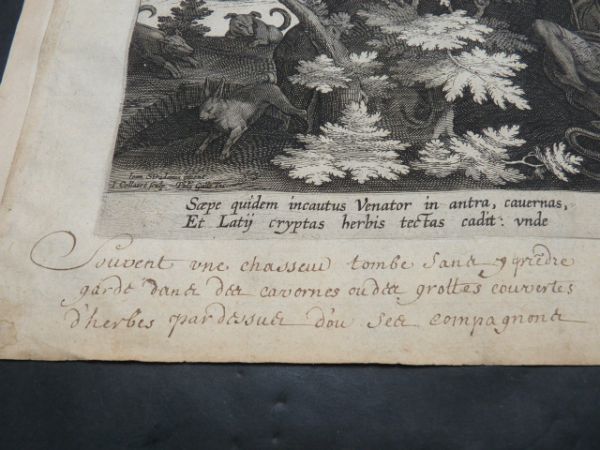 Ioan. Stradanus invent.
I. Collaert sculp. Phls Galle exc.
Sæpe quidem incautus Venator in antra, cauernas,
Et Latij cryptas herbis tectas cadit: vnde
Souvent vne chasseur tombe sans y prẽdre
garde dans des cavernes ou des grottes couvertes
d'herbes par dessus d'ou ses compagnons